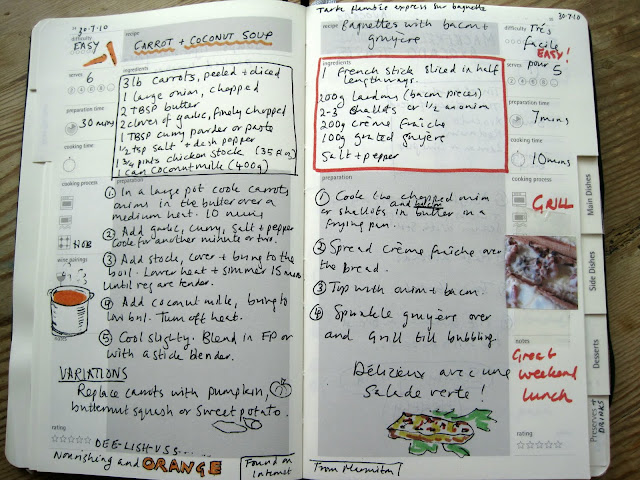 30·7·10
difficulty
EASY
recipe
CARROT + COCONUT SOUP
serves
6
ingredients
3 lb Carrots, peeled + diced
1 large onion, chopped
2 TBSP butter
2 cloves of garlic, finely chopped
1 TBSP curry powder or paste
1/2 tsp salt + dash pepper
1 3/4 pints chicken stock (35 fl oz)
1 can Coconut milk (400g)
preparation time
30 mins
cooking time
cooking process
HOB
preparation
① In a large pot cook carrots,
onions in the butter over a
medium heat. 10 mins
② Add garlic, curry, salt + pepper
Cook for another minute or two.
③ Add stock, cover + bring to the
boil. Lower heat + simmer 15 mins
until veg are tender.
④ Add coconut milk, bring to
low boil. Turn off heat.
⑤ Cool slightly. Blend in FP or
with a stick blender.
wine pairings
VARIATIONS
Replace carrots with pumpkin,
butternut squash or sweet potato.
rating
DEE-LISH-USS.....
Nourishing and ORANGE
Found on
Internet
Tarte flambée express sur baguette
recipe
Baguettes with bacon +
gruyère
30·7·10
difficulty
Très
facile
EASY!
serves
pour 5
ingredients
1 French stick sliced in half
lengthways.
200g lardons (bacon pieces)
2-3 shallots or 1/2 an onion
200g crème fraîche
100g grated gruyère
Salt + pepper
preparation time
7 mins
cooking time
10 mins
cooking process
GRILL
preparation
① Cook the chopped onion
or shallots and bacon in butter in a
frying pan.
② Spread crème fraîche over
the bread.
③ Top with onion + bacon.
④ Sprinkle gruyère over
and Grill till bubbling.
Délizieux avec une
Salade verte!
notes
Great
weekend
lunch
rating
Main Dishes
Side Dishes
Desserts
Preserves +
DRINKS